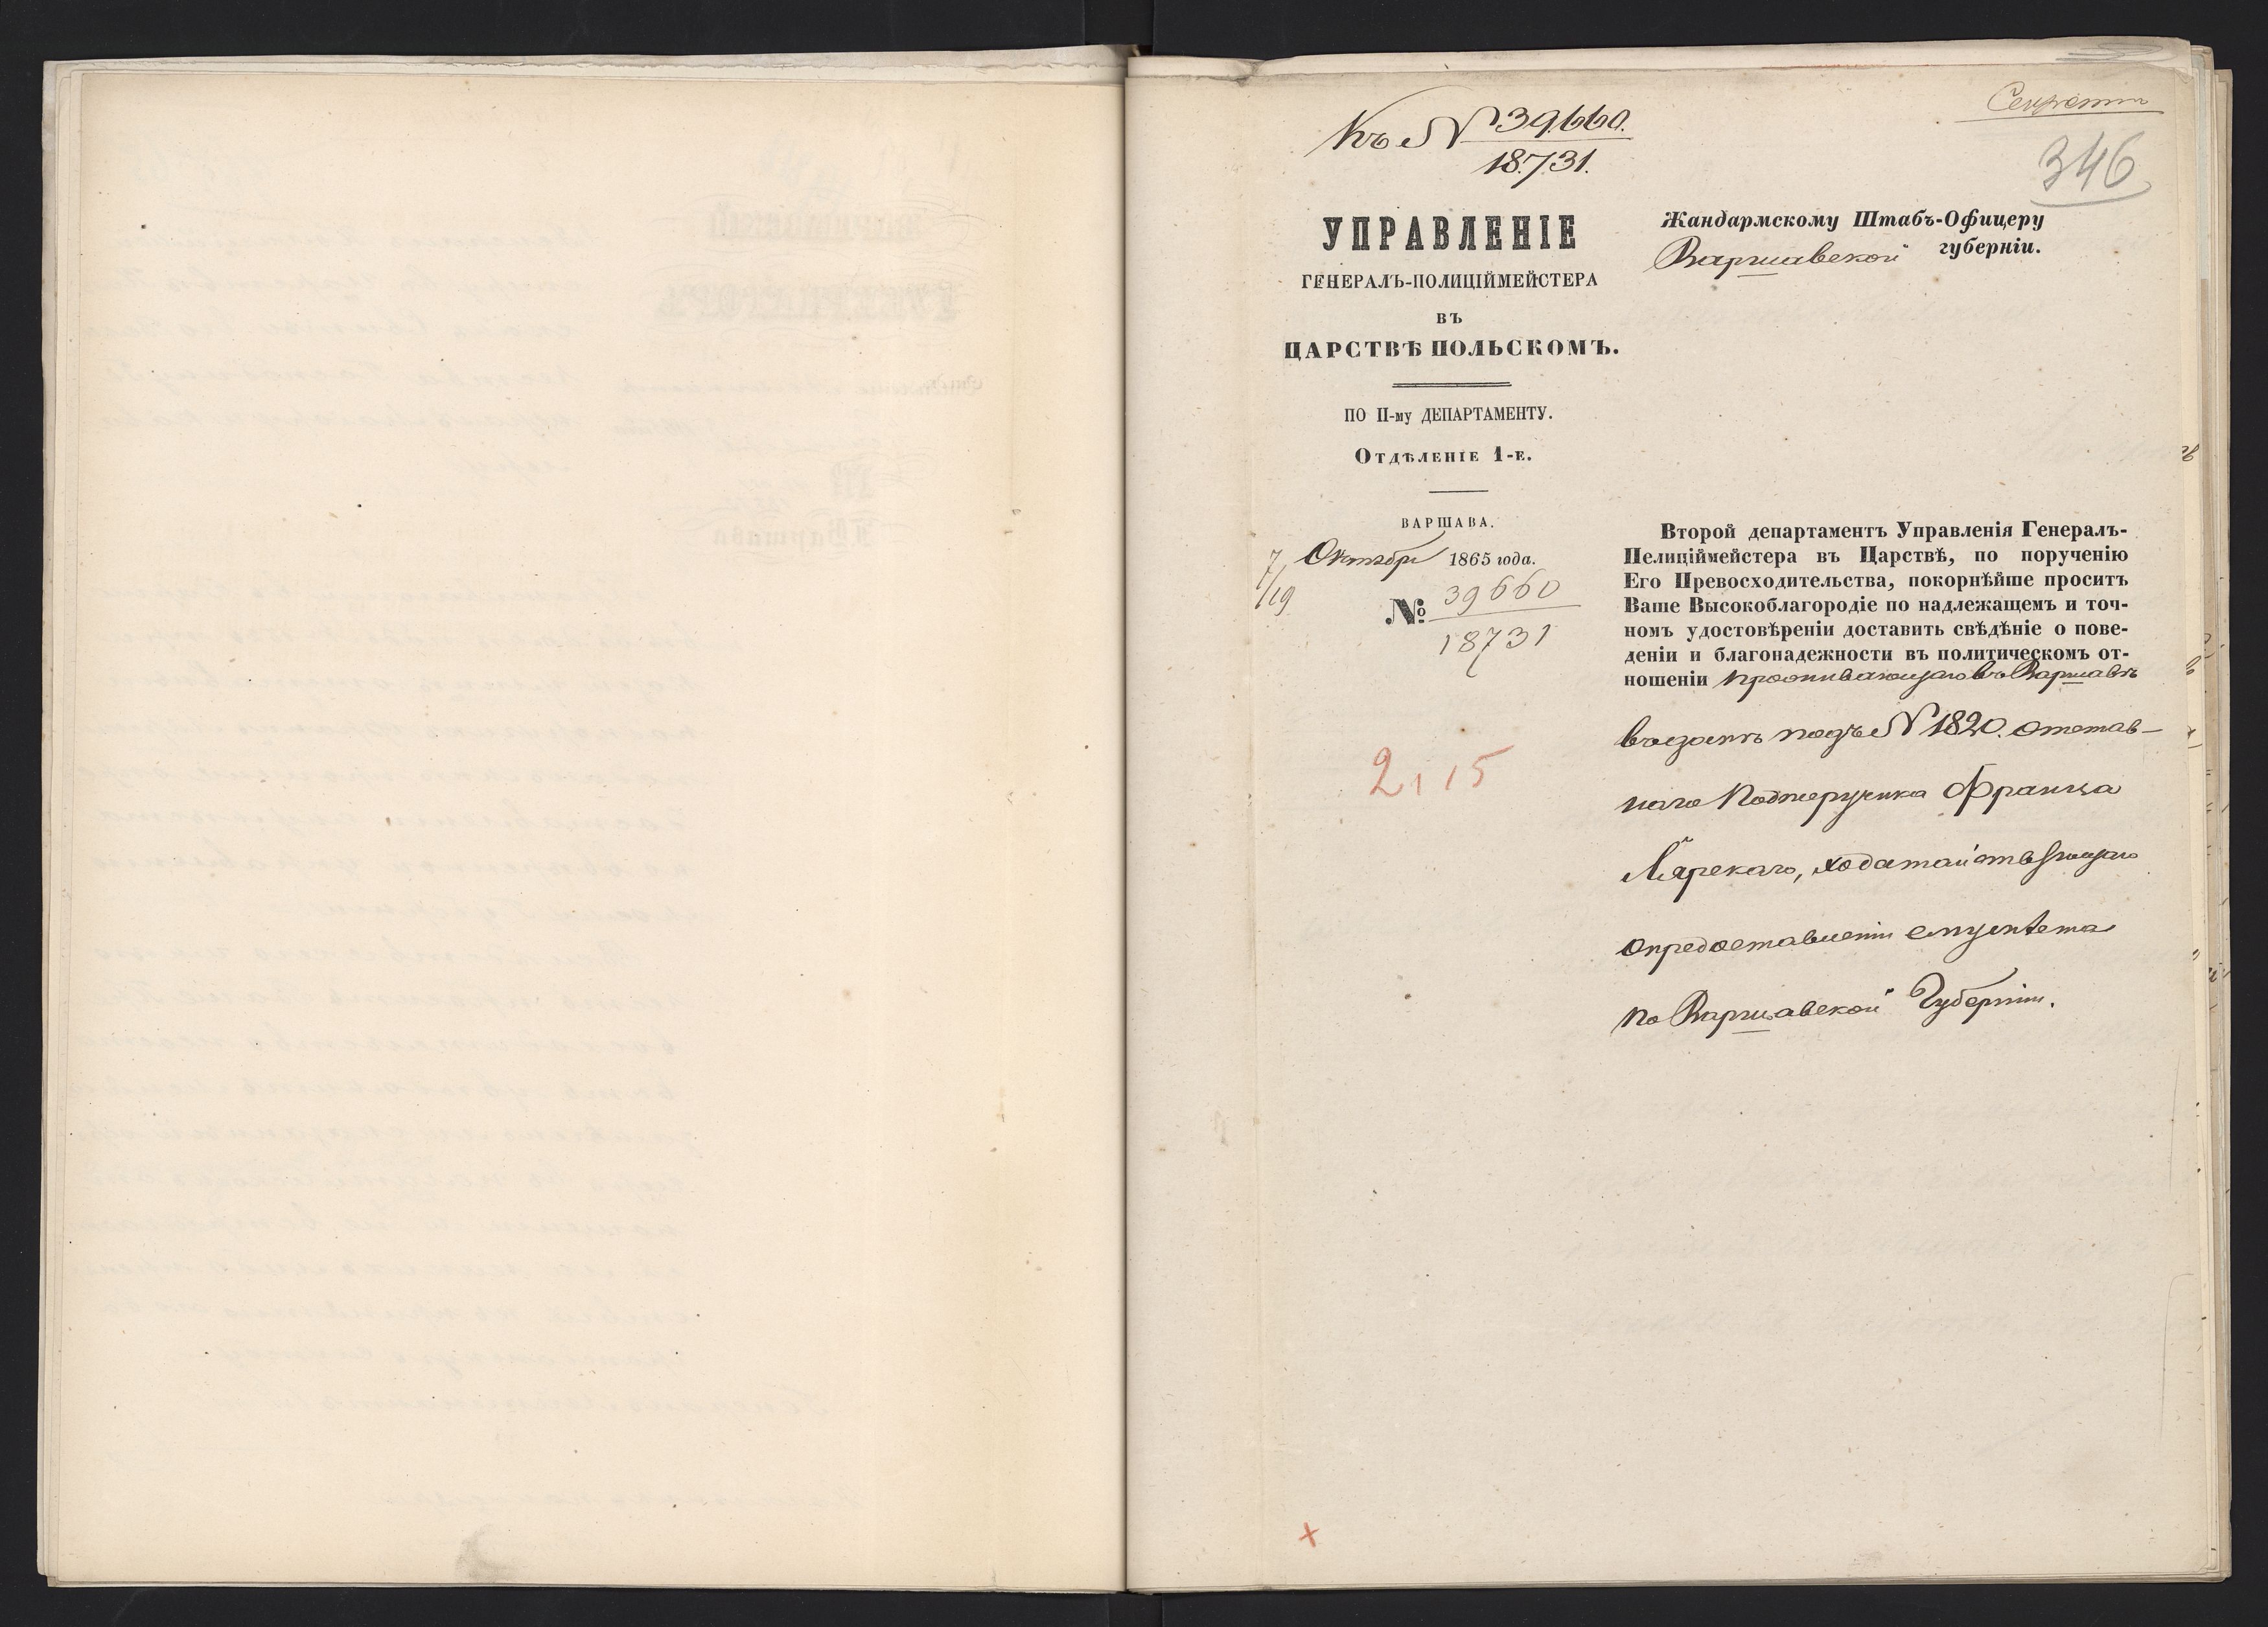 Секретно
346
Къ № 39.660.
18.731.
УПРАВЛЕНІЕ
ГЕНЕРАЛЪ-ПОЛИЦІЙМЕЙСТЕРА
ВЪ
ЦАРСТВѢ ПОЛЬСКОМЪ.
ПО II-му ДЕПАРТАМЕНТУ.
Отдѣленіе 1-е.
ВАРШАВА.
7/19 Октября 1865 года.
№ 39660
18731
2115
Жандармскому Штабъ-Офицеру
Варшавской губерніи.
Второй департаментъ Управленія Генералъ-
Пелиціймейстера въ Царствѣ, по порученію
Его Превосходительства, покорнѣйше проситъ
Ваше Высокоблагородіе по надлежащемъ и точ-
номъ удостовѣреніи доставить свѣдѣніе о пове-
деніи и благонадежности въ политическомъ от-
ношеніи проживающаго въ Варшавѣ
въ домѣ подъ № 1820. отстав-
наго Подпоручика Франца
ходатайствующаго
о предоставленіи ему
по Варшавской Губерніи.